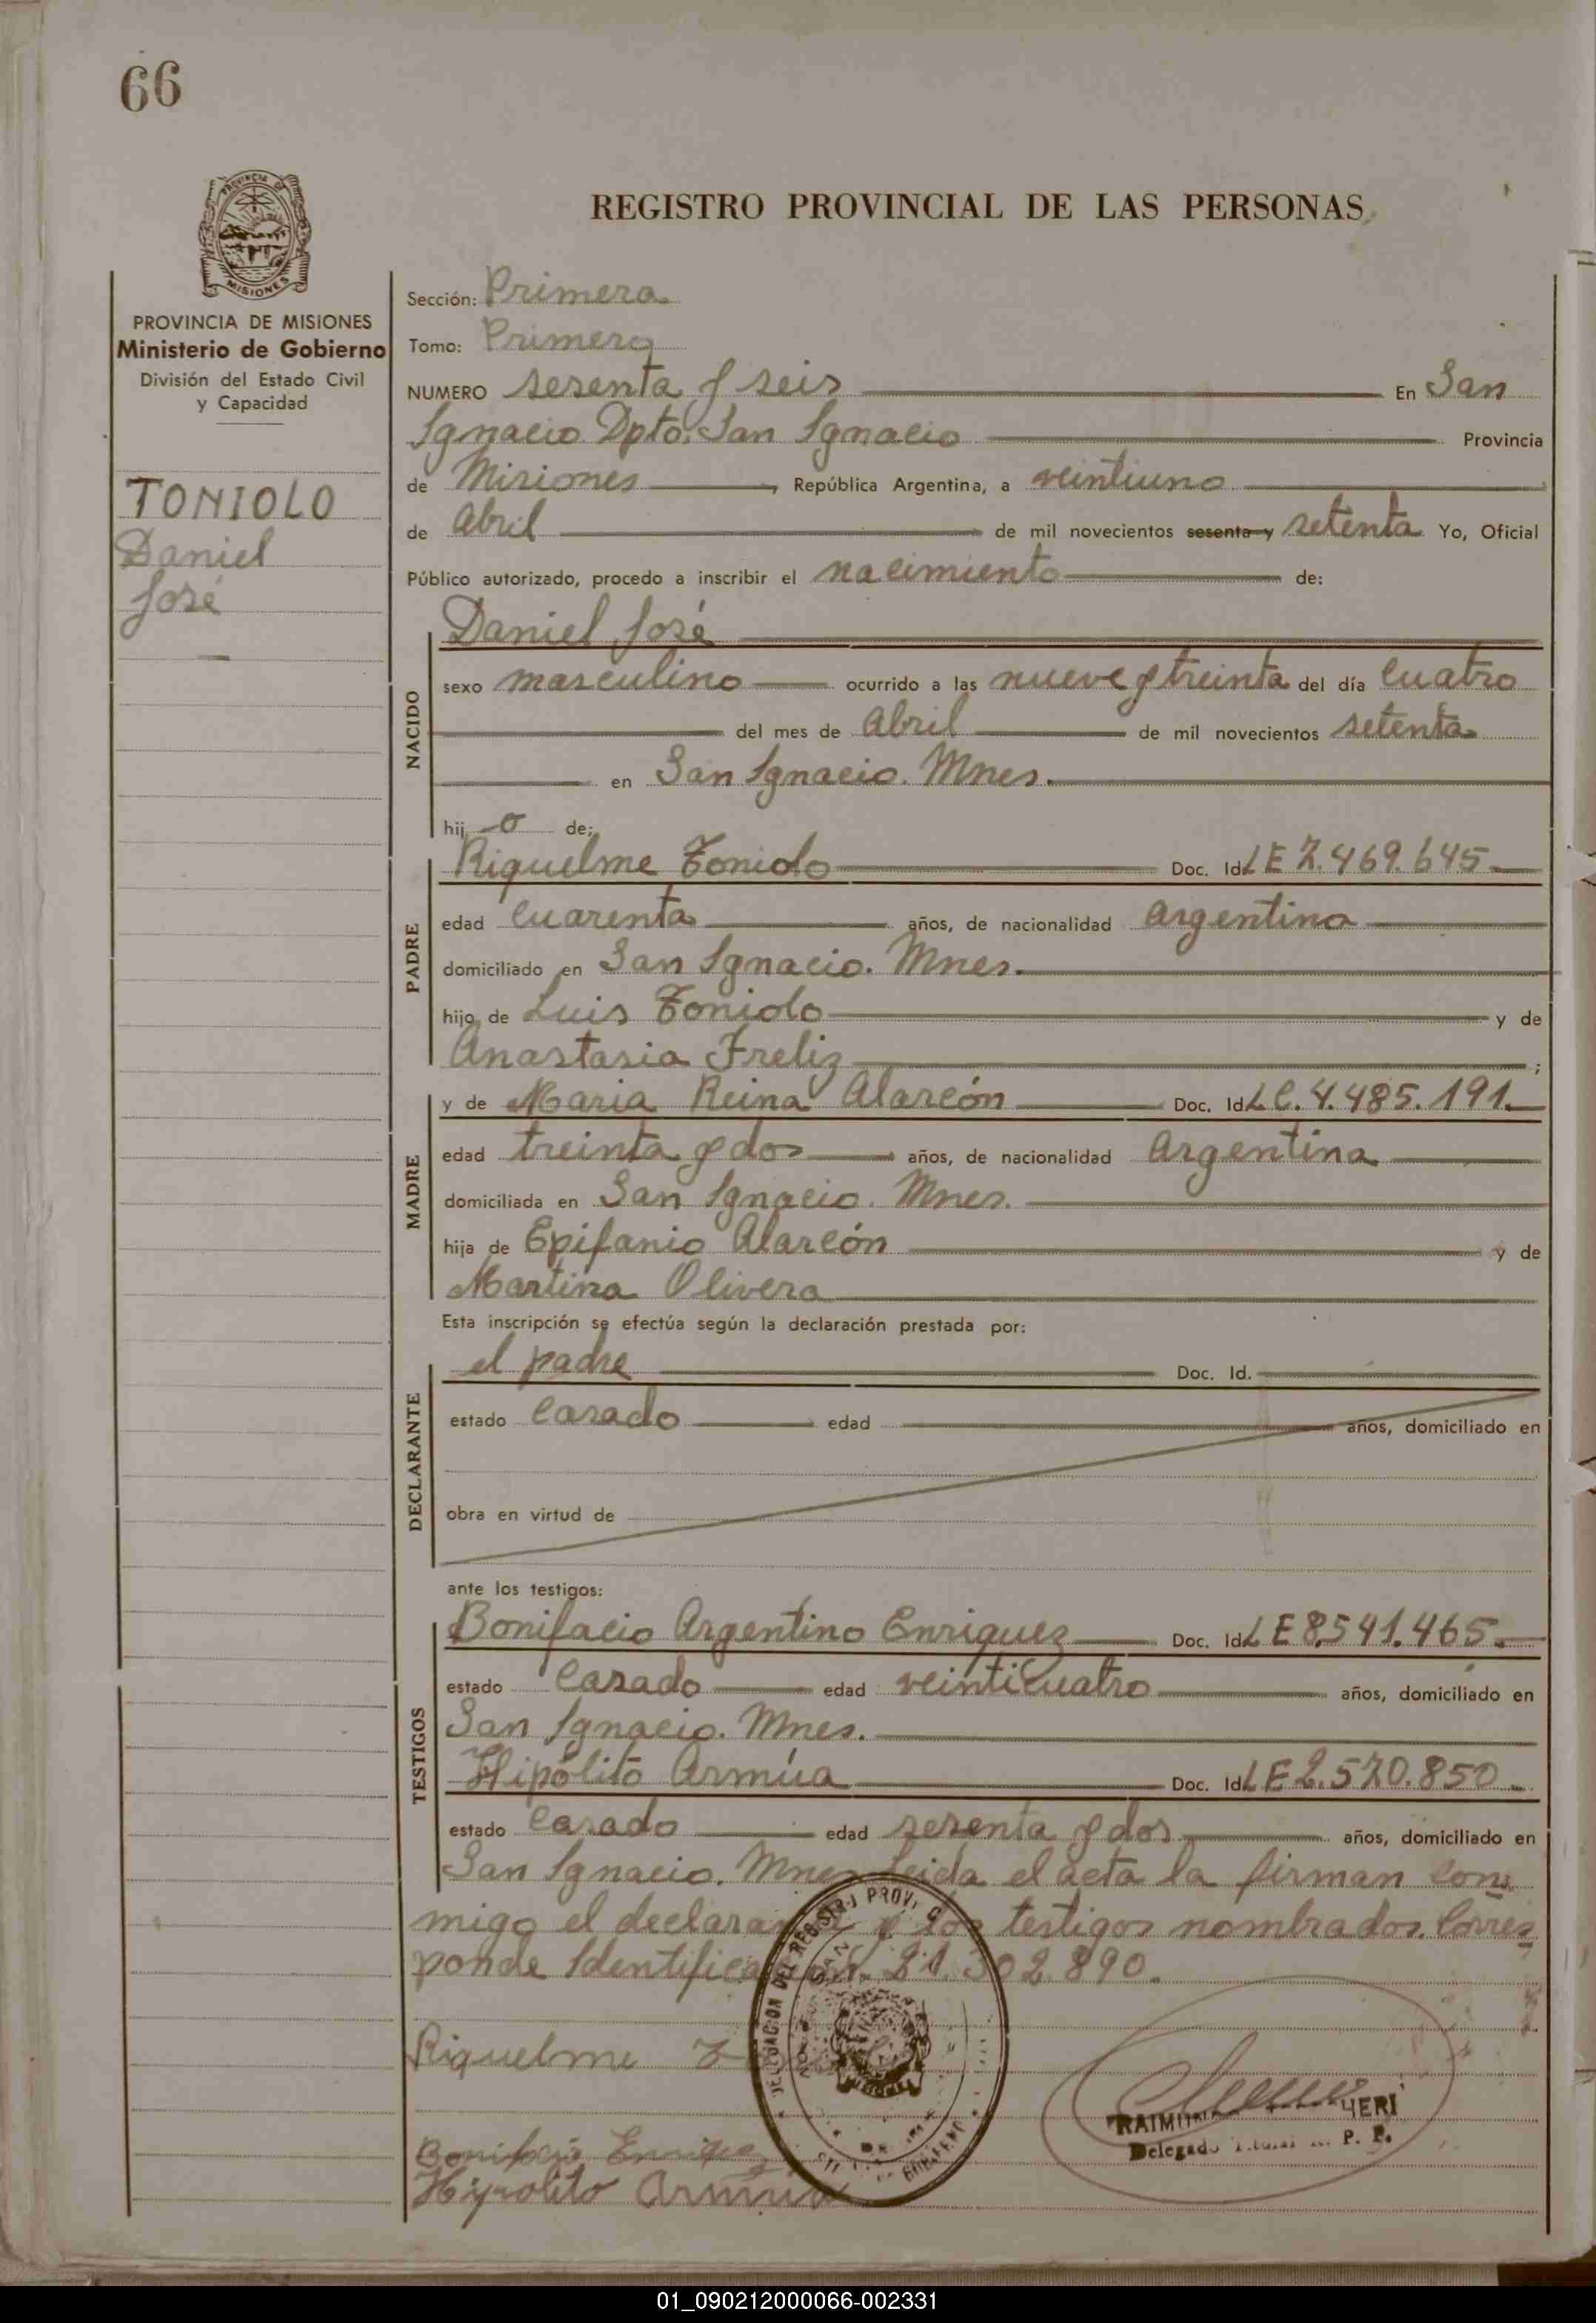 66
REGISTRO PROVINCIAL DE LAS PERSONAS
PROVINCIA DE MISIONES
PROVINCIA DE MISIONES
Ministerio de Gobierno
División del Estado Civil
y Capacidad
TONIOLO
Daniel
José
Sección: Primera
Tomo: Primero
NUMERO sesenta y seis En San
Ignacio Dpto. San Ignacio Provincia
de Misiones, República Argentina, a veintiuno
de Abril de mil novecientos sesenta y setenta Yo, Oficial
Público autorizado, procedo a inscribir el nacimiento de:
NACIDO
Daniel José
sexo masculino ocurrido a las nueve y treinta del día cuatro
del mes de Abril de mil novecientos setenta
en San Ignacio. Mnes.
hij o de:
PADRE
Riquelme Toniolo Doc. Id. LE 7.469.645
edad cuarenta años, de nacionalidad Argentino
domiciliado en San Ignacio. Mnes.
hijo de Luis Toniolo y de
Anastasia Freliz;
MADRE
y de Maria Reina Alarcón Doc. Id. L C. 4.485.191.
edad treinta y dos años, de nacionalidad Argentina
domiciliada en San Ignacio. Mnes.
hija de Epifanio Alarcón y de
Martina Olivera
Esta inscripción se efectúa según la declaración prestada por:
DECLARANTE
el padre Doc. Id.
estado casado edad años, domiciliado en
obra en virtud de
ante los testigos:
TESTIGOS
Bonifacio Argentino Enriquez Doc. Id. LE 8.541.465.
estado casado edad veinticuatro años, domiciliado en
San Ignacio. Mnes.
Hipólito Armúa Doc. Id. LE 2.570.850.
estado casado edad sesenta y dos años, domiciliado en
San Ignacio. Mnes. Leida el acta la firman con
migo el declarante y los testigos nombrados. Corres
ponde Identificación 21.302.890.
DELEGACION DEL REGISTRO PROV.
Riquelme
Bonifacio Enriquez
Hipolito Armúa
Delegado Titular R. P. P.
01_090212000066-002331